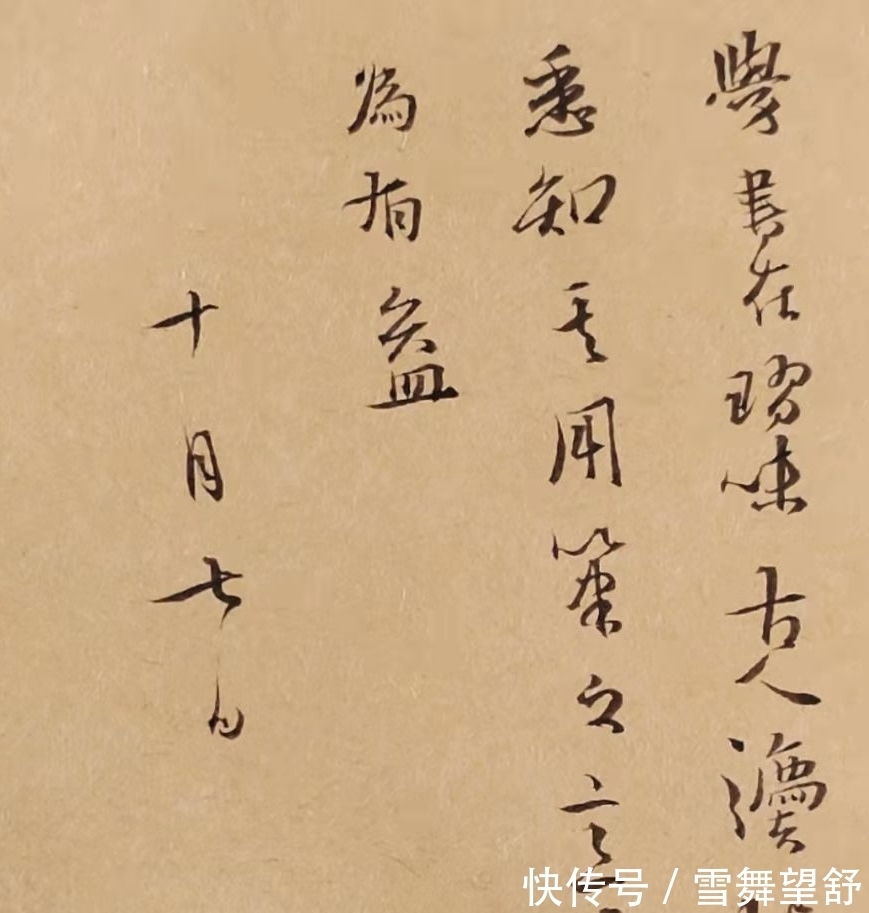 學書在翫味古人灋
悉知其用筆之意
為有益
十月七日
快传号 / 雪舞望舒